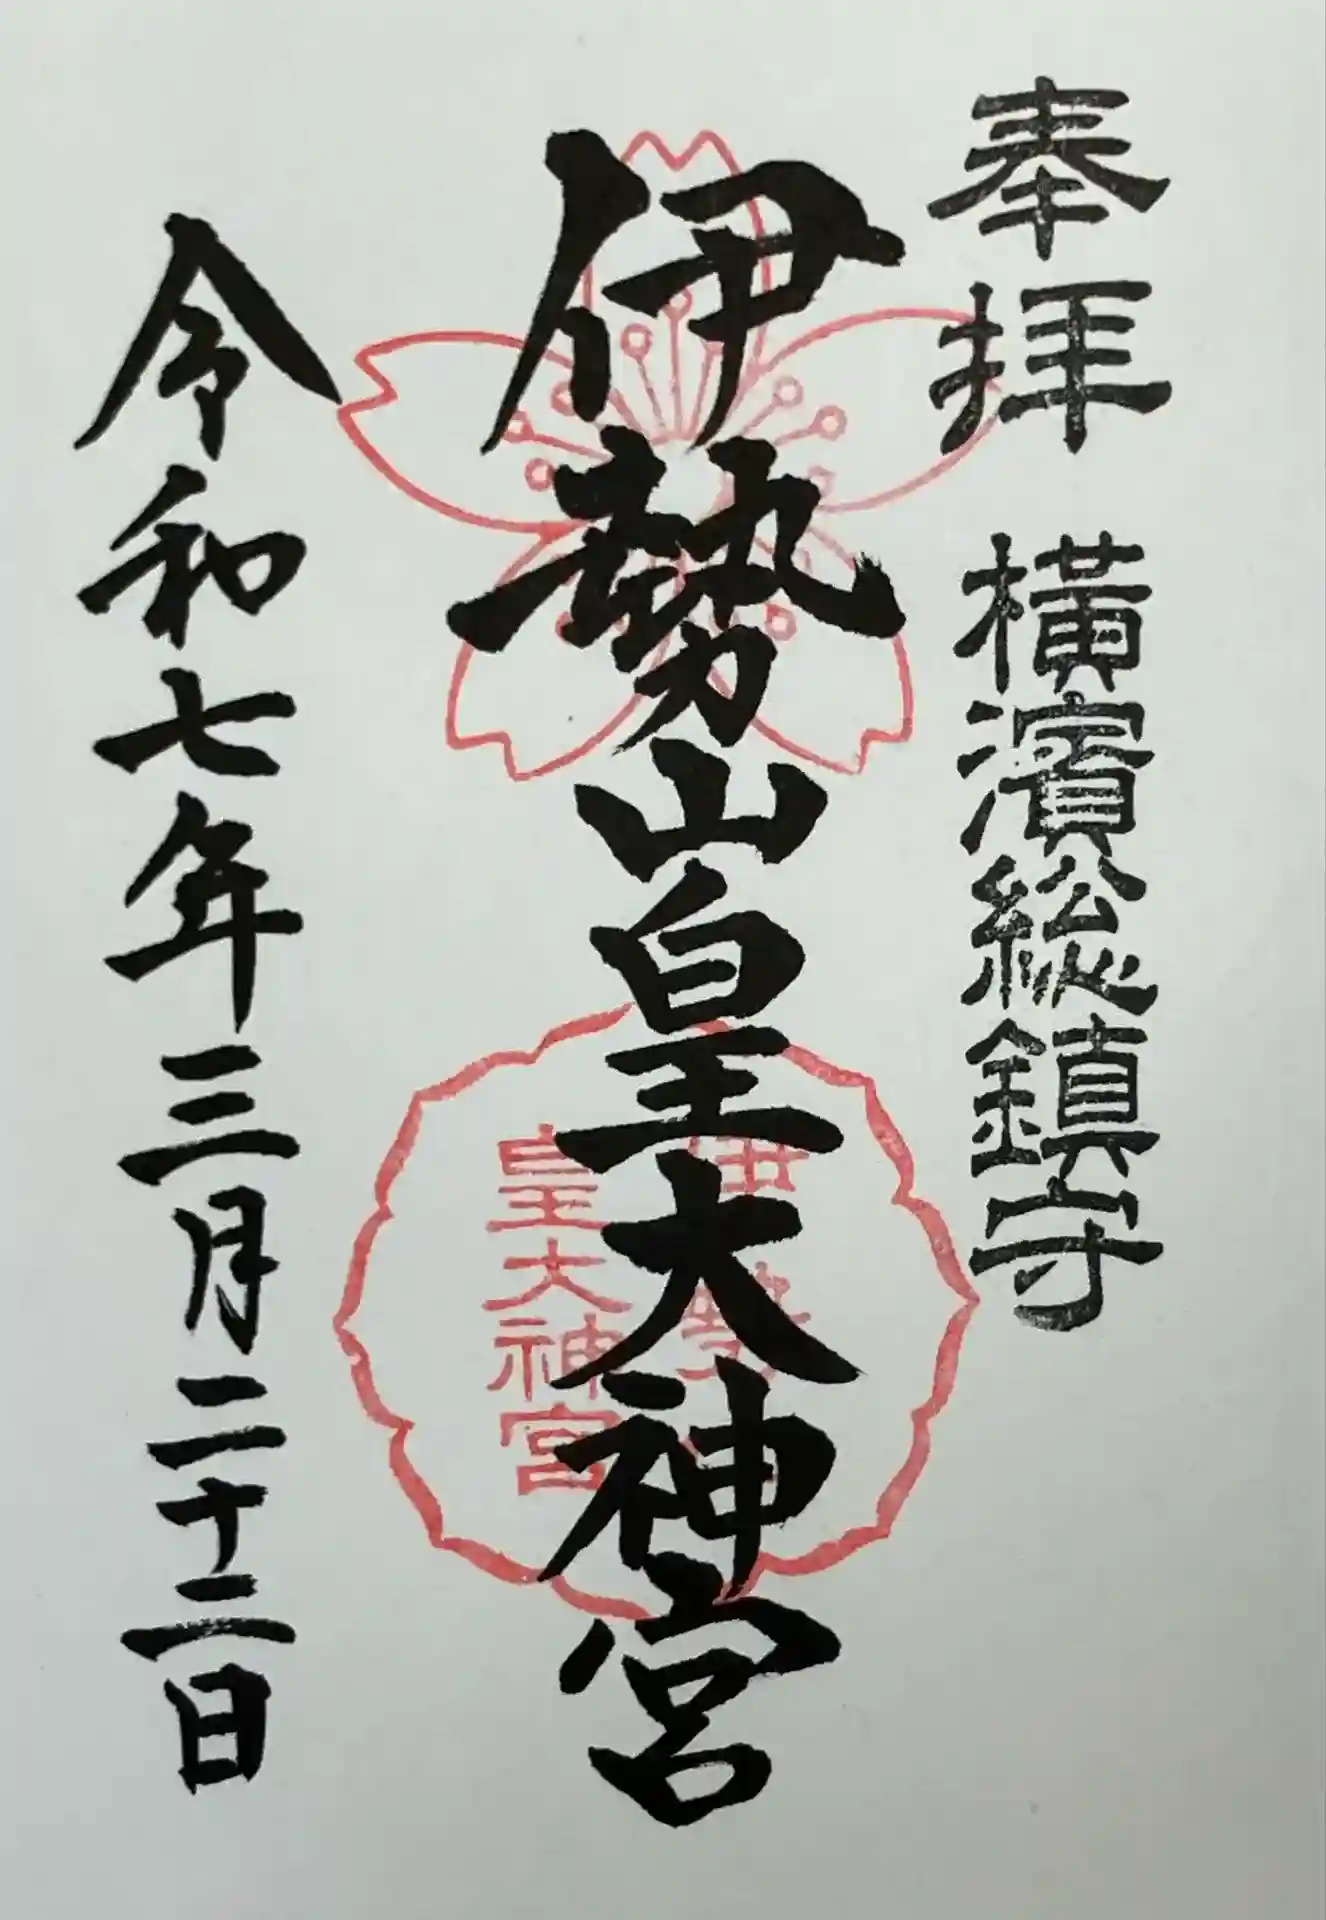 奉拝 横濱総鎮守
伊勢山皇大神宮
伊勢
皇大神宮
令和七年三月二十二日